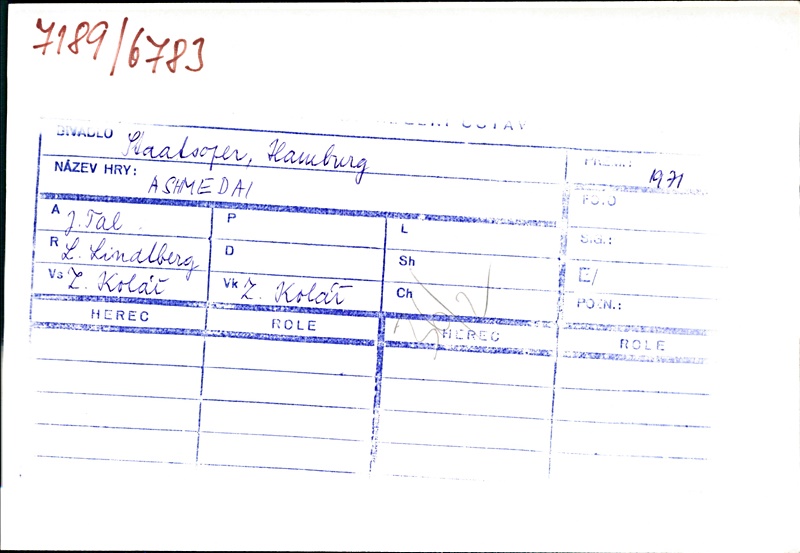 7189/6783
DIVADLO Staatsoper, Hamburg PREM.: 1971
NÁZEV HRY: ASHMEDAI FOTO
A J. Tal P L Sig.:
R L. Lindlberg D Sh E/
Vs Z. Kolář Vk Z. Kolář Ch POZN.:
HEREC ROLE HEREC ROLE